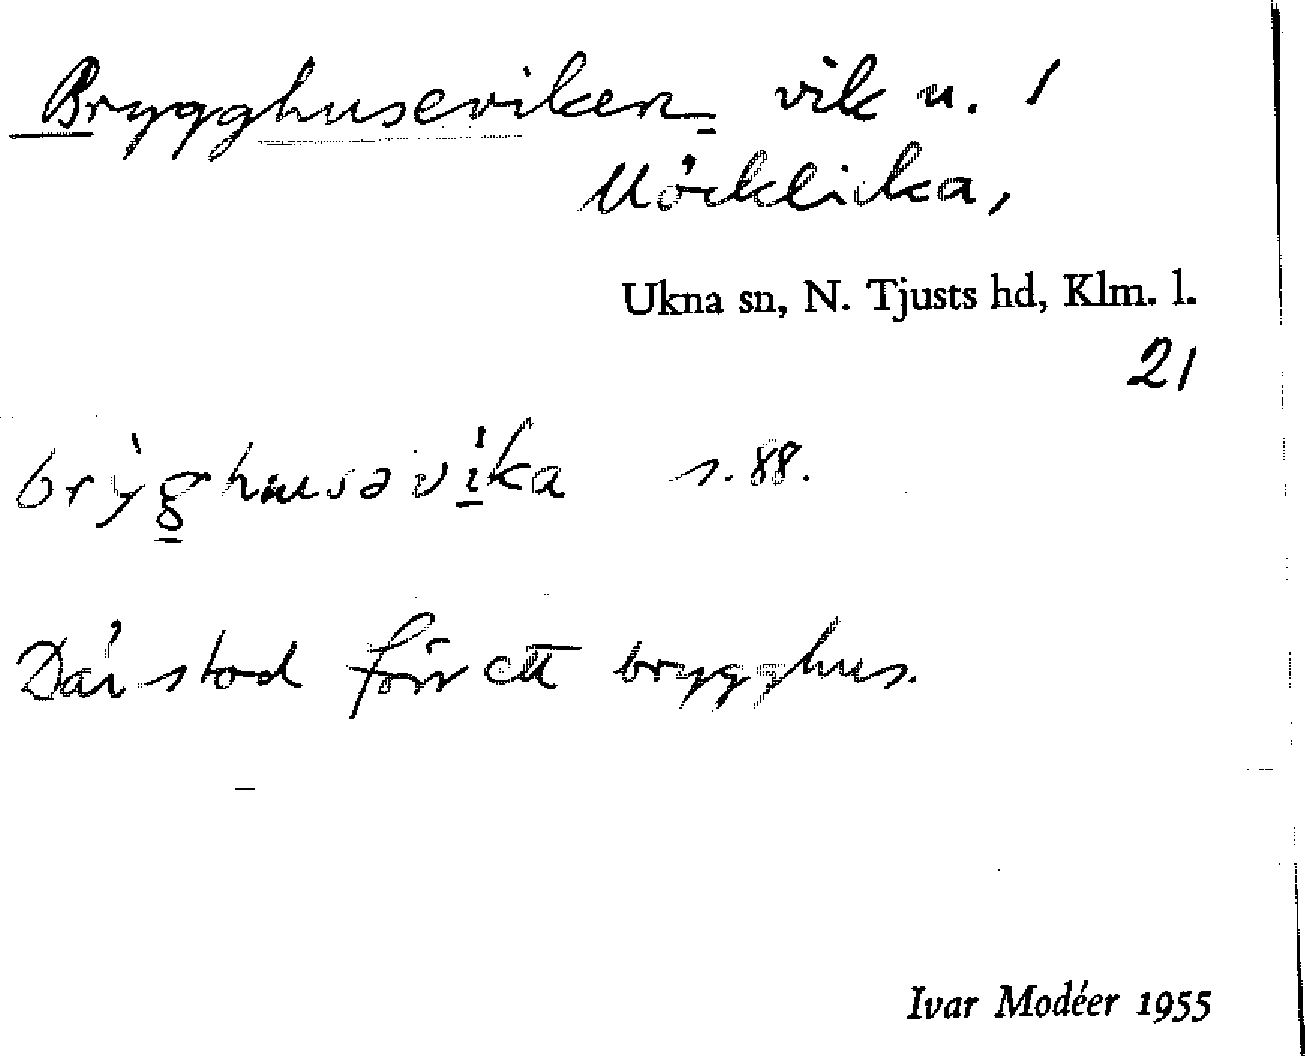 Brygghuseviken vik u. 1
Möcklicka,
Ukna sn, N. Tjusts hd, Klm. l.
21
brỳg̲husəví̲ka s. 88.
Där stod förr ett brygghus.
Ivar Modéer 1955